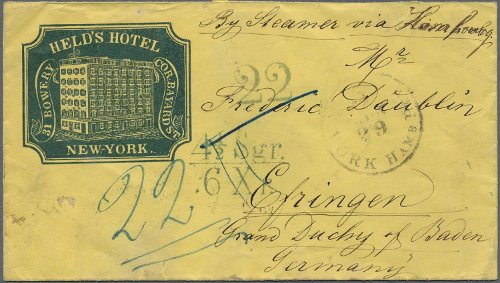 By Steamer via Hamburg
HELD'S HOTEL
31 BOWERY
COR. BAYARD St.
NEW-YORK.
Mr
22
Frederic Däublin
29
YORK HAMB. PKT
4½ Sgr.
6 Xr.
22
Efringen
Grand Duchy of Baden
Germany